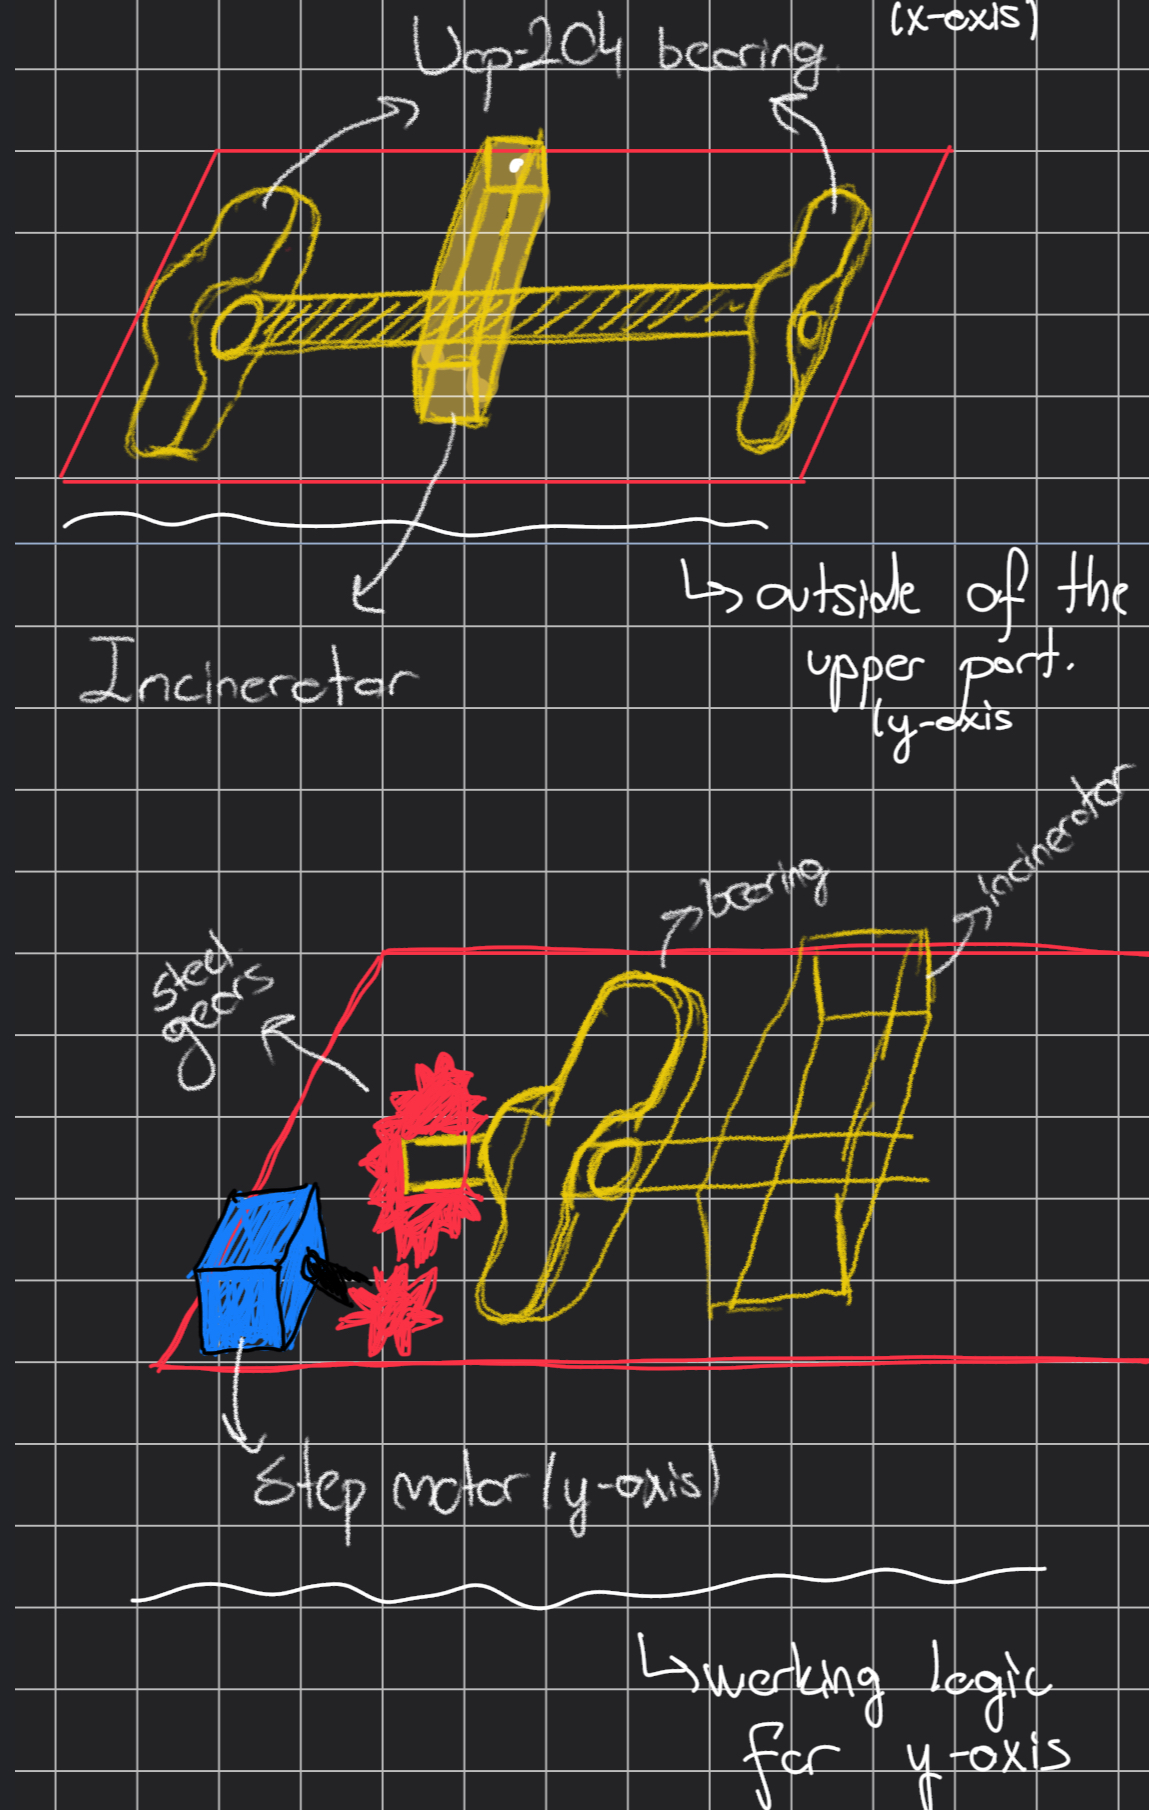 (x-axis)
Ucp-204 bearing
Incinerator
outside of the
upper part.
(y-axis
bearing
incinerator
steel
gears
Step motor (y-axis)
working logic
for y-axis